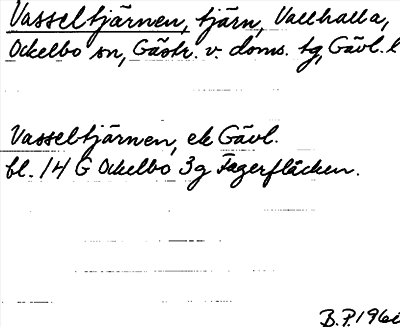 Vasseltjärnen, tjärn, Vallhalla,
Ockelbo sn, Gästr. v. doms. tg, Gävl. l
Vasseltjärnen, ek Gävl.
bl. 14 G Ockelbo 3g Fagerfläcken.
B.P. 196